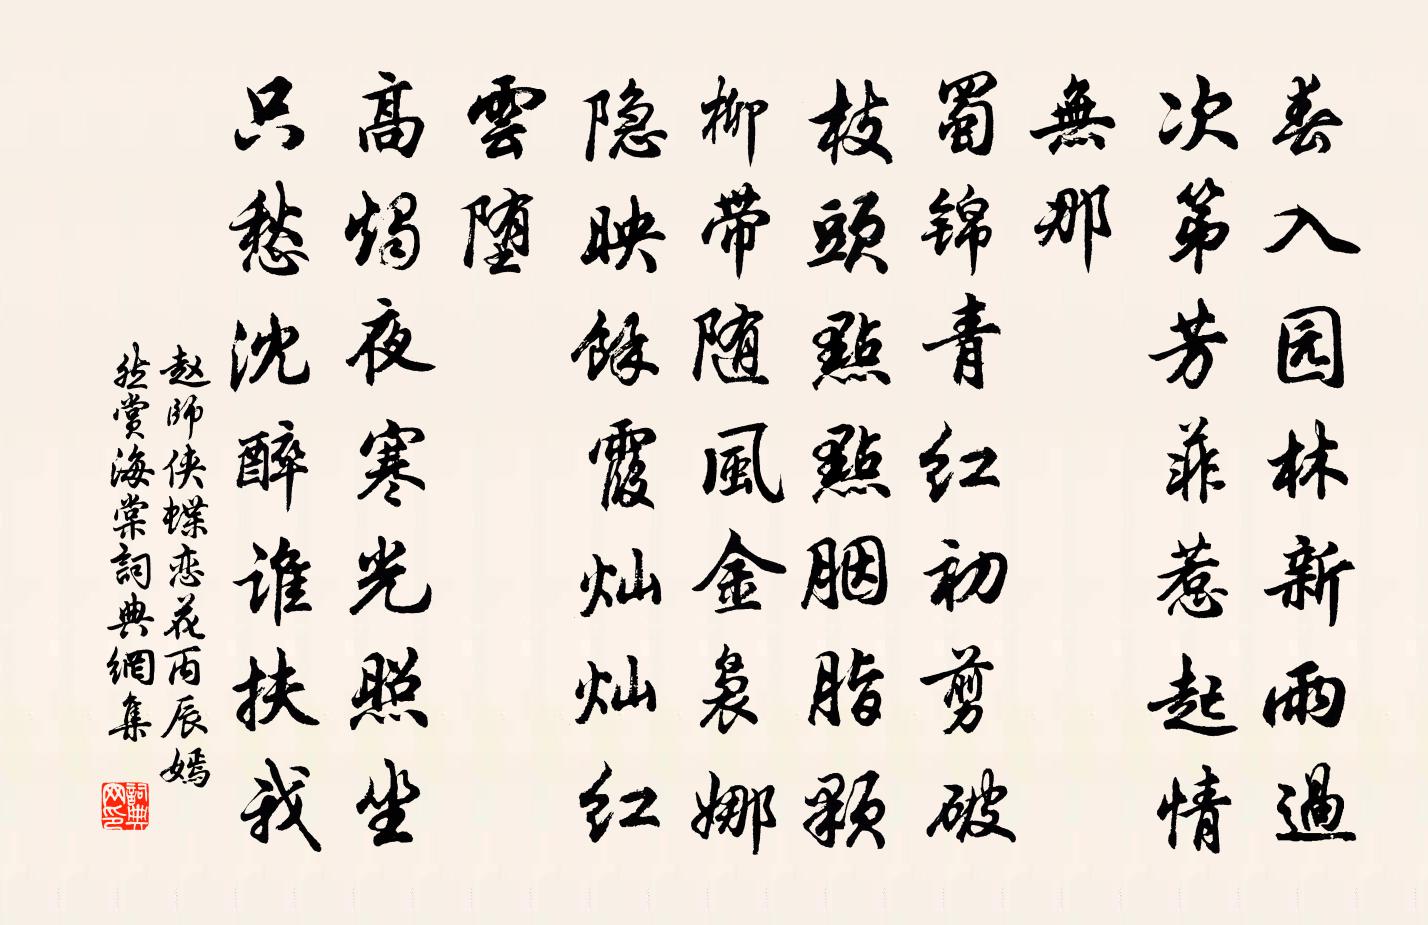 春入园林新雨過
次第芳菲惹起情
無那
蜀锦青红初剪破
枝頭點點胭脂顆
柳带随風金袅娜
隐映馀霞灿灿红
雲堕
高燭夜寒光照坐
只愁沈醉谁扶我
赵師侠蝶恋花丙辰嫣
然赏海棠詞典網集
詞典
网印